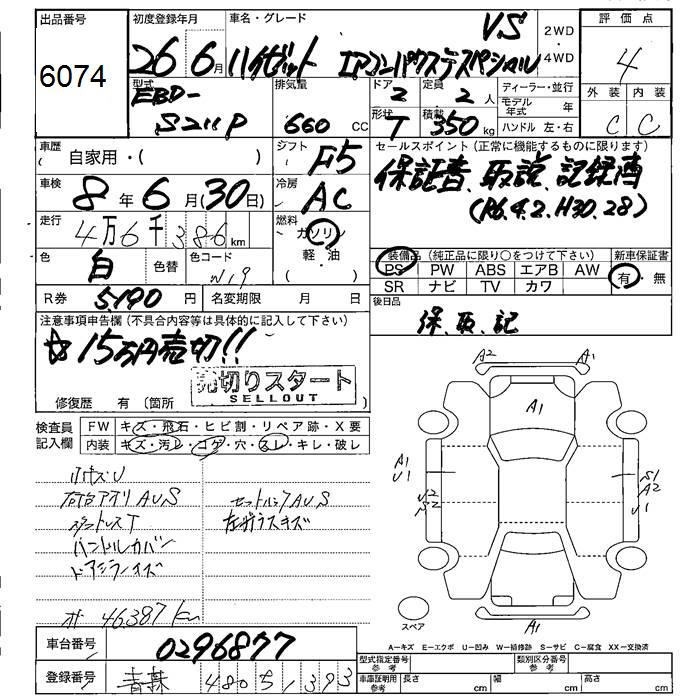 出品番号 初度登録年月 車名・グレード VS 2WD 評価点
6074 26 6月 ハイゼット エアコンパワステスペシャル ・4WD 4
型式 EBD-S211P 排気量 660 CC ドア 2 定員 2人 ディーラー・並行 外装 内装
形状 T 積載 350kg モデル年式 年 ハンドル 左・右 C C
車歴 自家用・( ) シフト F5 セールスポイント (正常に機能するものに限ります)
車検 8年 6月(30日) 冷房 AC 保証書、取説、記録簿
走行 4万6千386km 燃料 ガソリン 軽・油 (R6.4.2.H30.28)
色 白 色替 色コード W19 装備品 (純正品に限り○をつけて下さい) 新車保証書
PS PW ABS エアB AW 有・無
SR ナビ TV カワ
R券 5,190円 名変期限 月 日 後日品
注意事項申告欄 (不具合内容等は具体的に記入して下さい) 保、取、記
☆15万円売切!!
売切りスタート
SELLOUT
修復歴 有 (箇所 )
検査員記入欄 FW キズ・飛石・ヒビ割・リペア跡・X要
内装 キズ・汚レ・コゲ・穴・スレ・キレ・破レ
A2 A1
A1
A1 U1
S1 A2 U1
A1
ハンドルカバー
左ガラスキズ
46387 km
スペア
A=キズ E=エクボ U=凹み W=補修跡 S=サビ C=腐食 XX=交換済
車台番号 0296877
登録番号 青森 480 5 1393
型式指定番号 参考 類別区分番号 参考
車庫証明用 参考 長さ cm 幅 cm 高さ cm